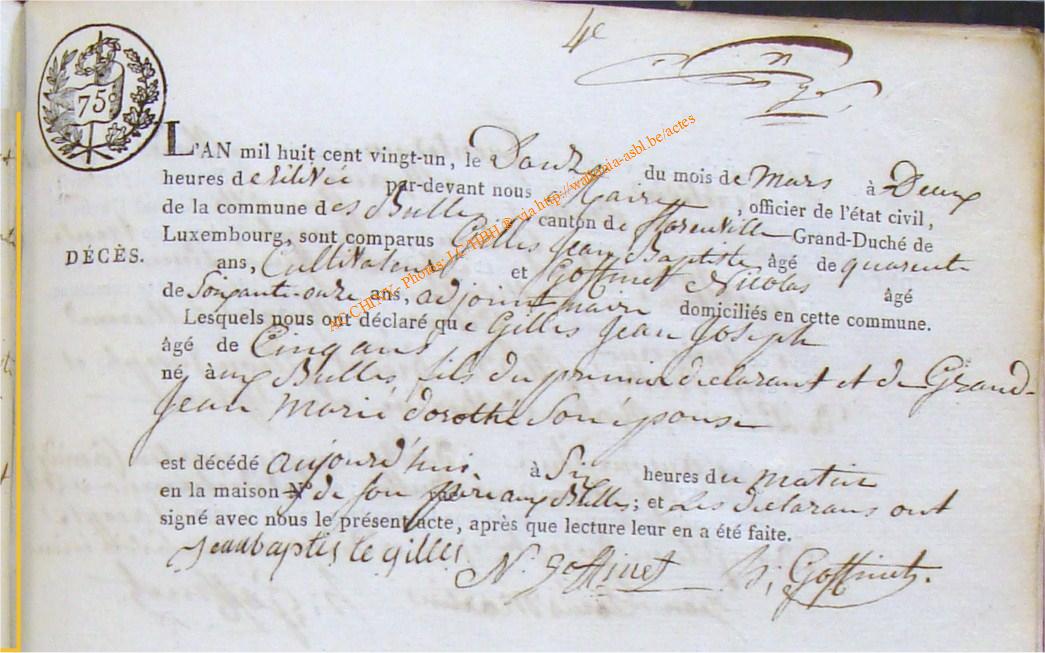 4e
75c
L'AN mil huit cent vingt-un, le Douze du mois de Mars à Deux
heures de relevée par-devant nous Maire, officier de l'état civil,
de la commune des Bulles canton de florenville Grand-Duché de
Luxembourg, sont comparus Gilles Jean Baptiste âgé de quarente
DÉCÈS.
ans, Cultivateur et Goffinet Nicolas âgé
de Soixante-onze ans, adjoint maire domiciliés en cette commune.
Lesquels nous ont déclaré que Gilles Jean Joseph
âgé de Cinq ans
né aux Bulles, fils du premier declarant et de Grand-
Jean Marie dorothé Son épouse
est décédé aujourd'hui à Six heures du matin
en la maison N° de son père aux Bulles; et Les declarans ont
signé avec nous le présent acte, après que lecture leur en a été faite.
jeanbaptiste gilles N. goffinet h; Goffinet.
ARCHIVY - Photos: J.C. HBH ® via http://wallonia-asbl.be/actes